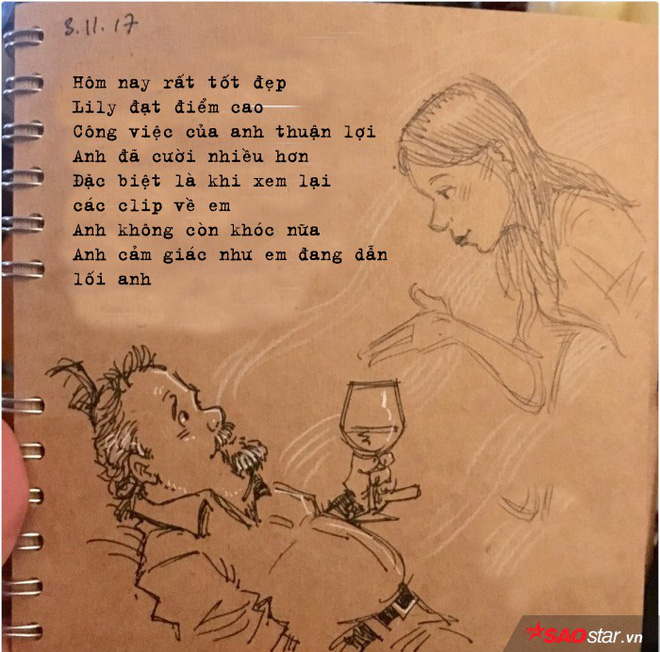 3.11.17
Hôm nay rất tốt đẹp
Lily đạt điểm cao
Công việc của anh thuận lợi
Anh đã cười nhiều hơn
Đặc biệt là khi xem lại
các clip về em
Anh không còn khóc nữa
Anh cảm giác như em đang dẫn
lối anh
SAOstar.vn